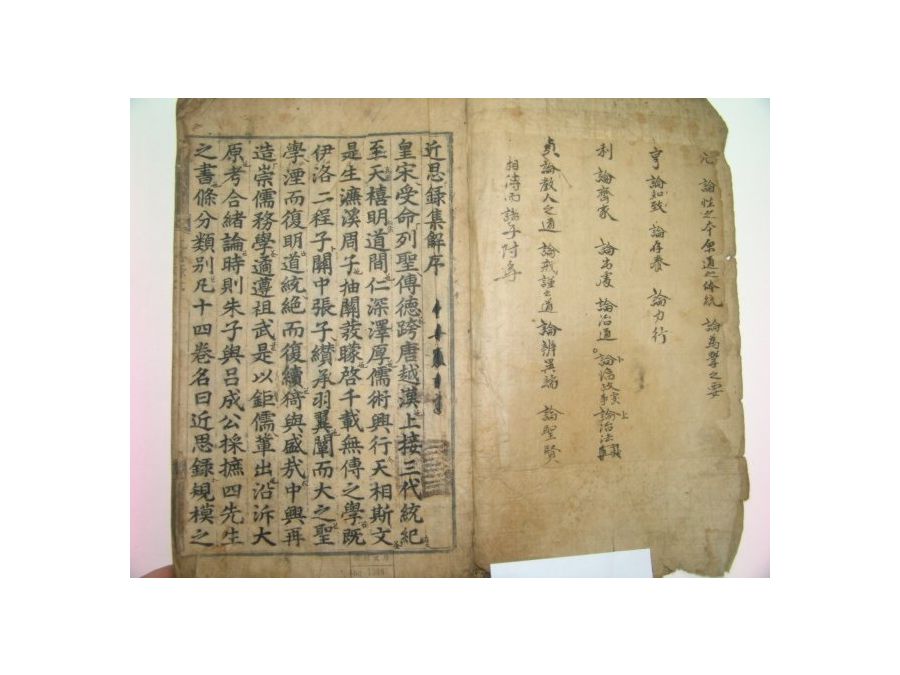 元 論性之本原道之体統 論為學之要
亨 論知致 論存養 論力行
利 論齊家 論出處 論治道 論治法
貞 論教人之道 論戒謹之道 論辨異端 論聖賢
相傳而諸子附焉
近思錄集解序
皇宋受命列聖傳德跨唐越漢上接三代統紀
至天禧明道間仁深澤厚儒術興行天相斯文
是生濂溪周子抽關發矇啓千載無傳之學既
伊洛二程子關中張子纘承羽翼闡而大之聖
學湮而復明道統絕而復續猗與盛哉中興再
造崇儒務學遹遵祖武是以鉅儒軰出沿泝大
原考合緒論時則朱子與呂成公採摭四先生
之書條分類别凡十四卷名曰近思錄規模之